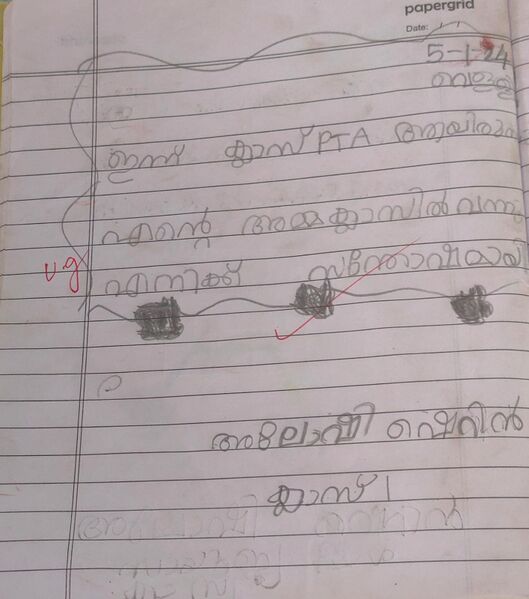 papergrid
Date:
5-1-24
വെള്ളി
ഇന്ന് ക്ലാസ് PTA ആയിരുന്നു
എന്റെ അമ്മ ക്ലാസിൽ വന്നു
എനിക്ക് സന്തോഷമായി
v g
ഷെറിൻ
ക്ലാസ് 1